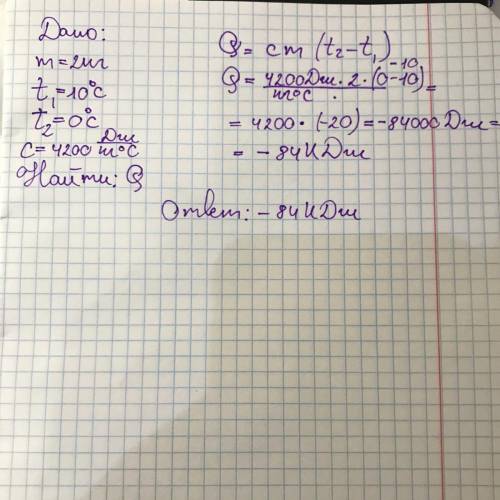 Дано:
m = 2кг
t₁ = 10°С
t₂ = 0°С
c = 4200 Дж/кг°С
Найти: Q
Q = cm (t₂ - t₁)
-10
Q = 4200Дж · 2 · (0-10)/кг°С =
= 4200 · (-20) = -84000 Дж =
= - 84 КДж
Ответ: - 84 КДж